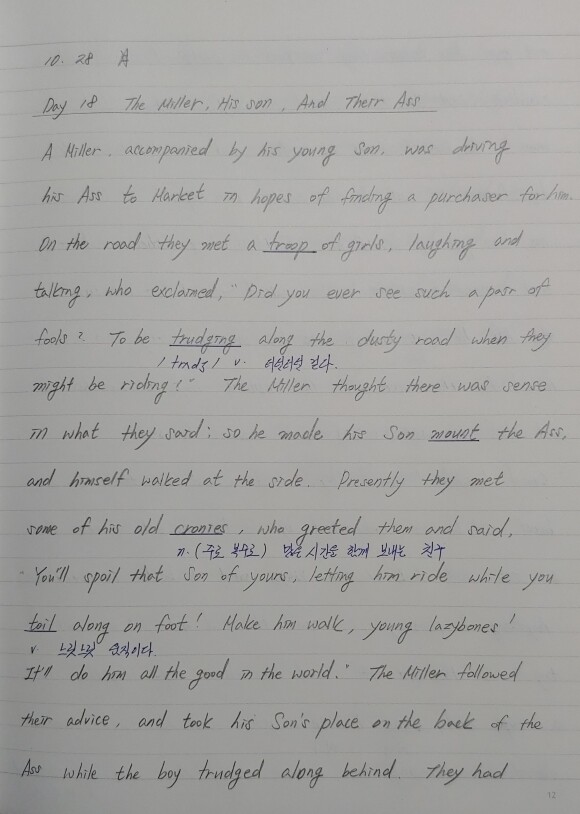 10. 28 A
Day 18 The Miller, His son, And Their Ass
A Miller, accompanied by his young Son, was driving
his Ass to Market in hopes of finding a purchaser for him.
On the road they met a troop of girls, laughing and
talking, who exclaimed, "Did you ever see such a pair of
fools? To be trudging along the dusty road when they
v. 터덜터덜 걷다.
might be riding!" The Miller thought there was sense
in what they said; so he made his Son mount the Ass,
and himself walked at the side. Presently they met
some of his old cronies, who greeted them and said,
n. (주로 복수로) 많은 시간을 함께 보내는 친구
"You'll spoil that Son of yours, letting him ride while you
toil along on foot! Make him walk, young lazybones!
v. 느릿느릿 움직이다.
It'll do him all the good in the world." The Miller followed
their advice, and took his Son's place on the back of the
Ass while the boy trudged along behind. They had
12